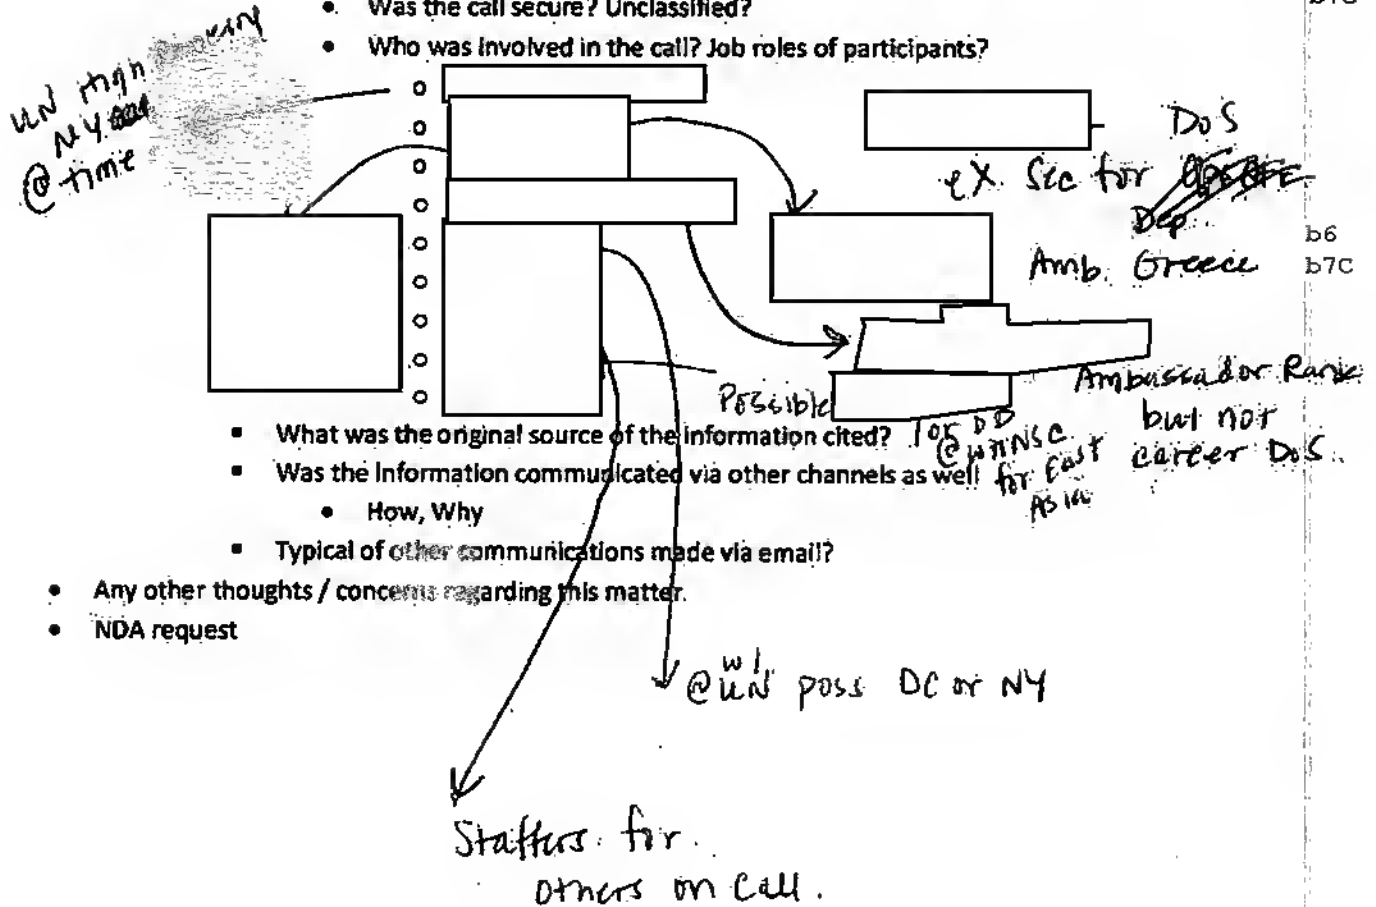 • Was the call secure? Unclassified?
• Who was involved in the call? Job roles of participants?
UN High Ranking
NY
@ time
DoS
ex. Sec for
Dep
b6
Amb. Greece
b7C
Ambassador Rank
but not
career DoS.
Possible
▪ What was the original source of the information cited?
for East
Asia
▪ Was the information communicated via other channels as well
• How, Why
▪ Typical of other communications made via email?
• Any other thoughts / concerns regarding this matter.
• NDA request
@ w/
UN poss DC or NY
Staffers for
others on call.